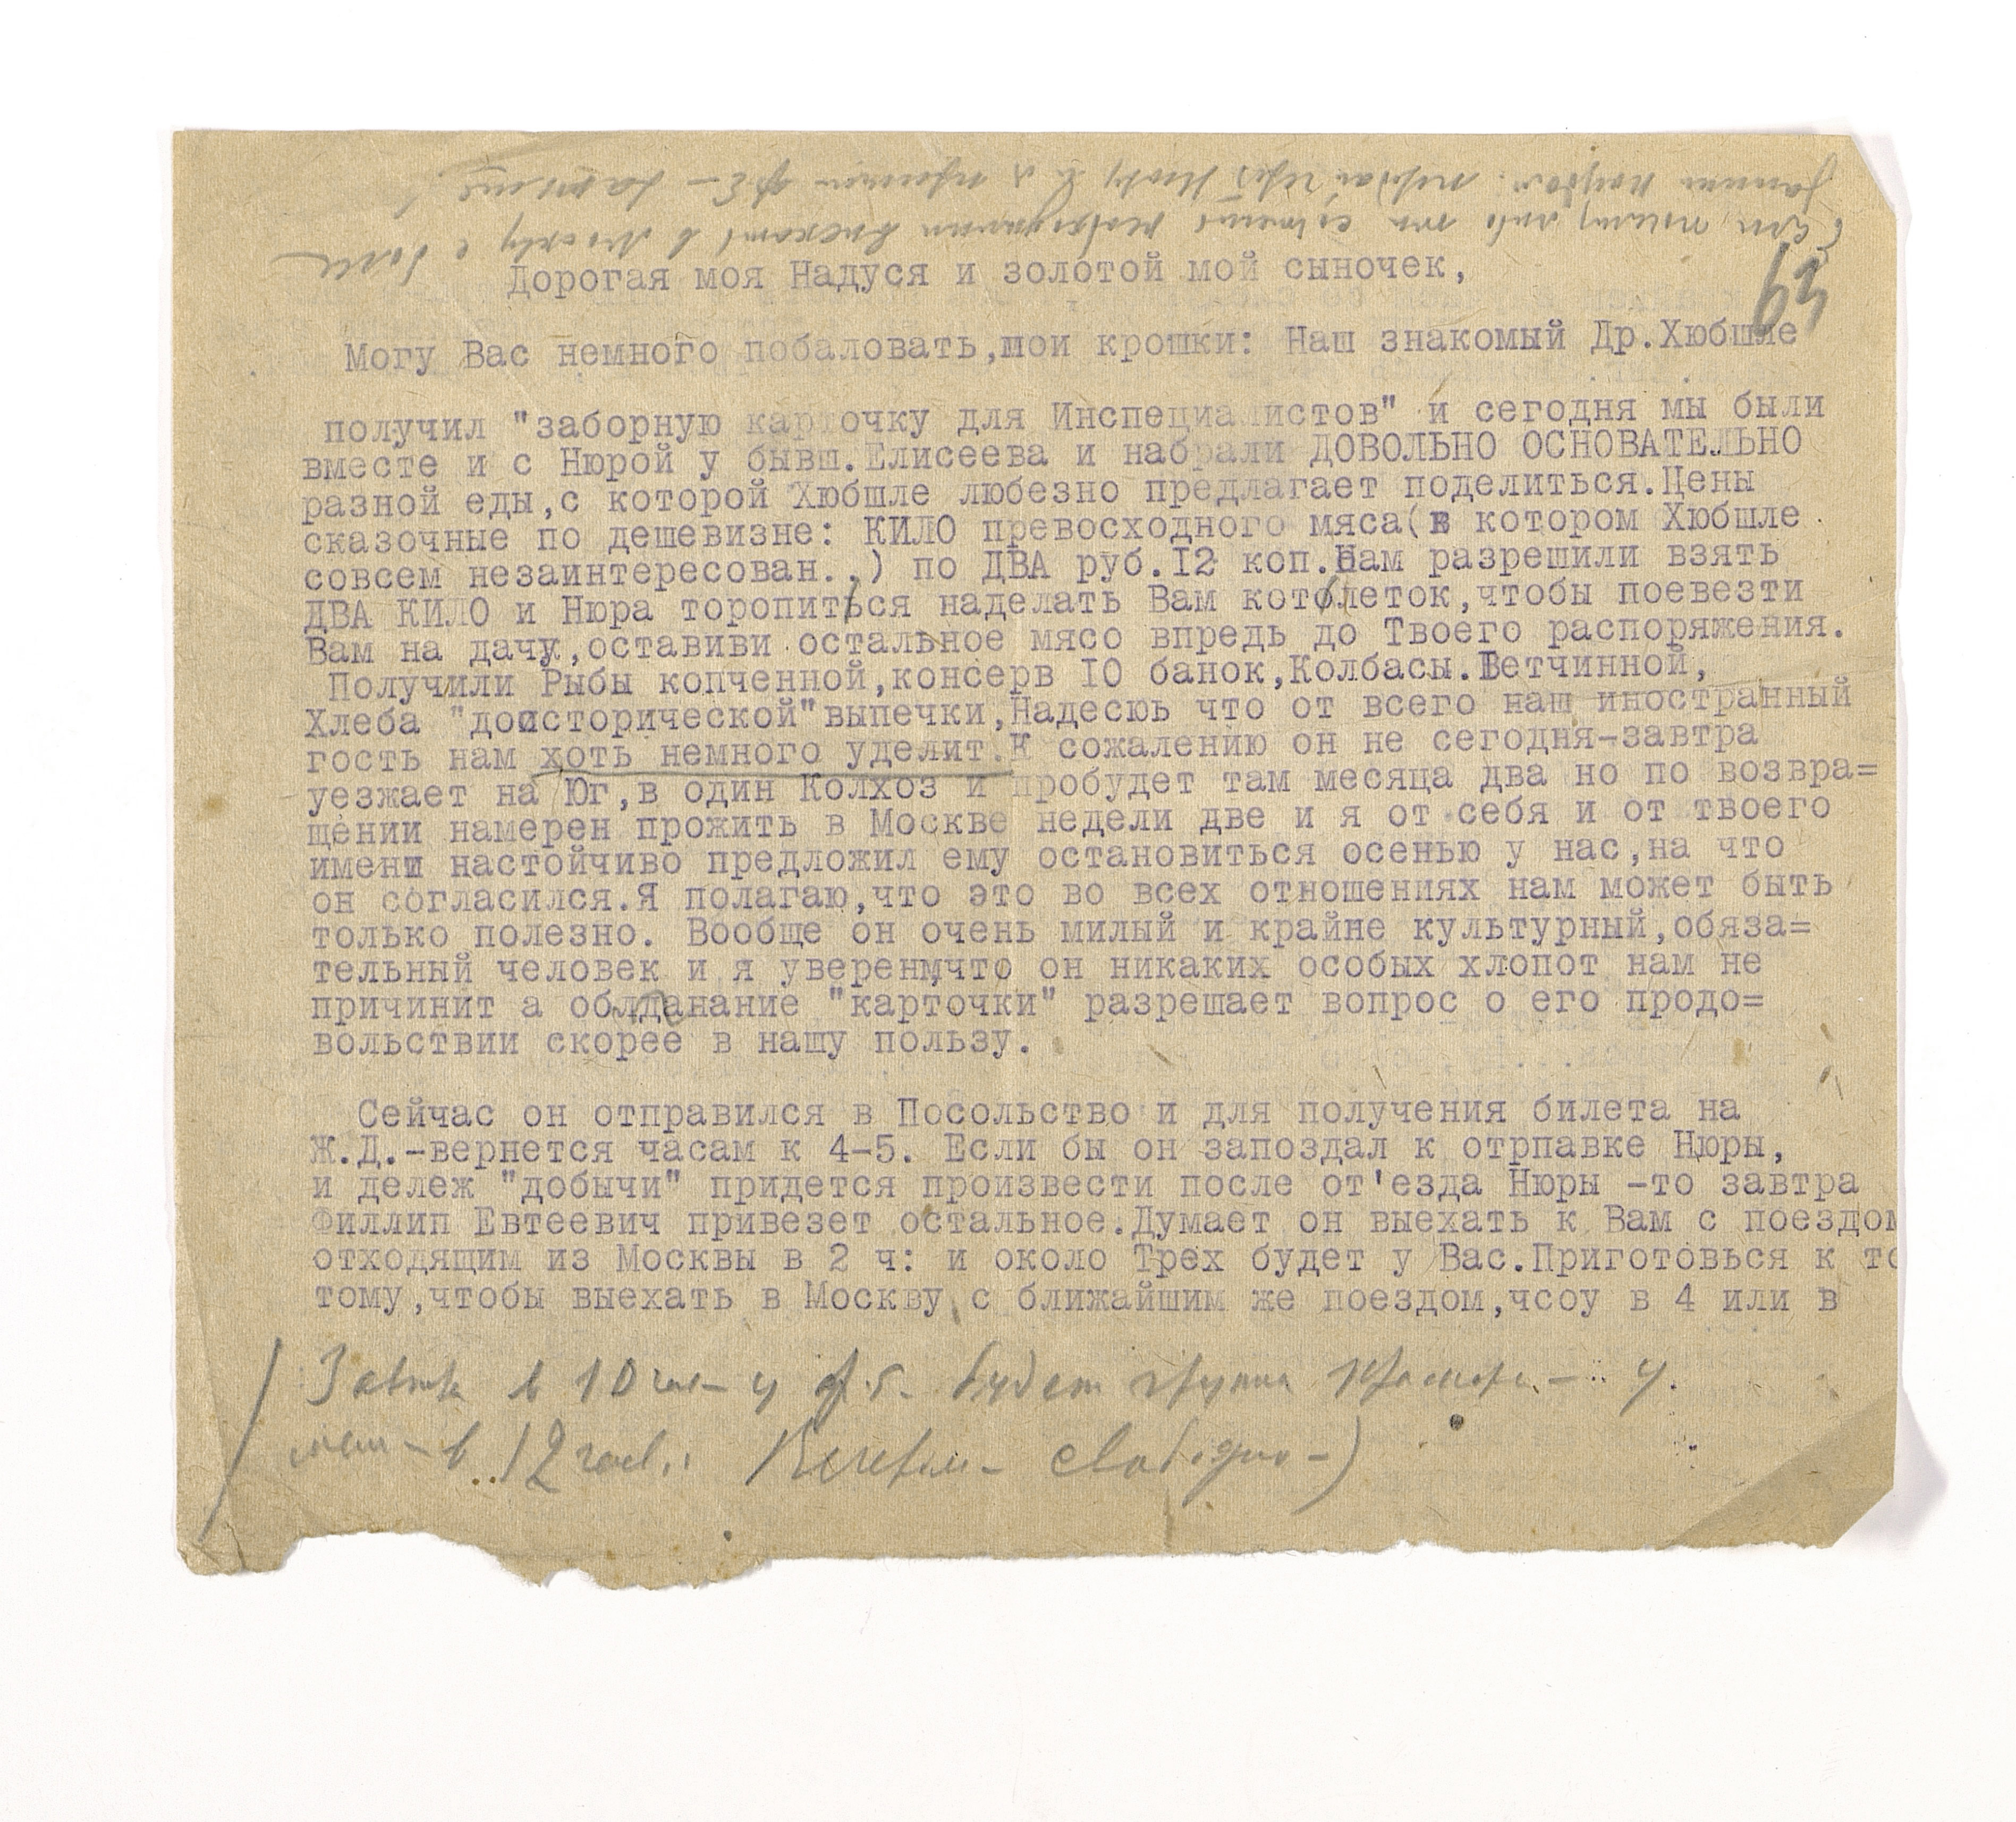 Дорогая моя Надуся и золотой мой сыночек,
59
Могу Вас немного побаловать,мои крошки: Наш знакомый Др.Хюбшле
получил "заборную карточку для Инспециалистов" и сегодня мы были
вместе и с Нюрой у бывш.Елисеева и набрали ДОВОЛЬНО ОСНОВАТЕЛЬНО
разной еды,с которой Хюбшле любезно предлагает поделиться.Цены
сказочные по дешевизне: КИЛО превосходного мяса(в котором Хюбшле
совсем незаинтересован..) по ДВА руб.I2 коп.Нам разрешили взять
ДВА КИЛО и Нюра торопиться наделать Вам котолеток,чтобы поевезти
Вам на дачу,оставиви остальное мясо впредь до Твоего распоряжения.
Получили Рыбы копченной,консерв IO банок,Колбасы.Ветчинной,
Хлеба "доисторической"выпечки,Надесюь что от всего наш иностранный
гость нам хоть немного уделит.К сожалению он не сегодня-завтра
уезжает на Юг,в один Колхоз и пробудет там месяца два но по возвра=
щении намерен прожить в Москве недели две и я от себя и от твоего
имени настойчиво предложил ему остановиться осенью у нас,на что
он согласился.Я полагаю,что это во всех отношениях нам может быть
только полезно. Вообще он очень милый и крайне культурный,обяза=
тельный человек и я уверен,что он никаких особых хлопот нам не
причинит а облданание "карточки" разрешает вопрос о его продо=
вольствии скорее в нашу пользу.
Сейчас он отправился в Посольство и для получения билета на
Ж.Д.-вернется часам к 4-5. Если бы он запоздал к отрпавке Нюры,
и дележ "добычи" придется произвести после от'езда Нюры -то завтра
Филлип Евтеевич привезет остальное.Думает он выехать к Вам с поездом
отходящим из Москвы в 2 ч: и около Трех будет у Вас.Приготовься к то
тому,чтобы выехать в Москву с ближайшим же поездом,чсоу в 4 или в
Завтра в 10 час у будет группа у
меня в 12 час. Вечером свободно -)